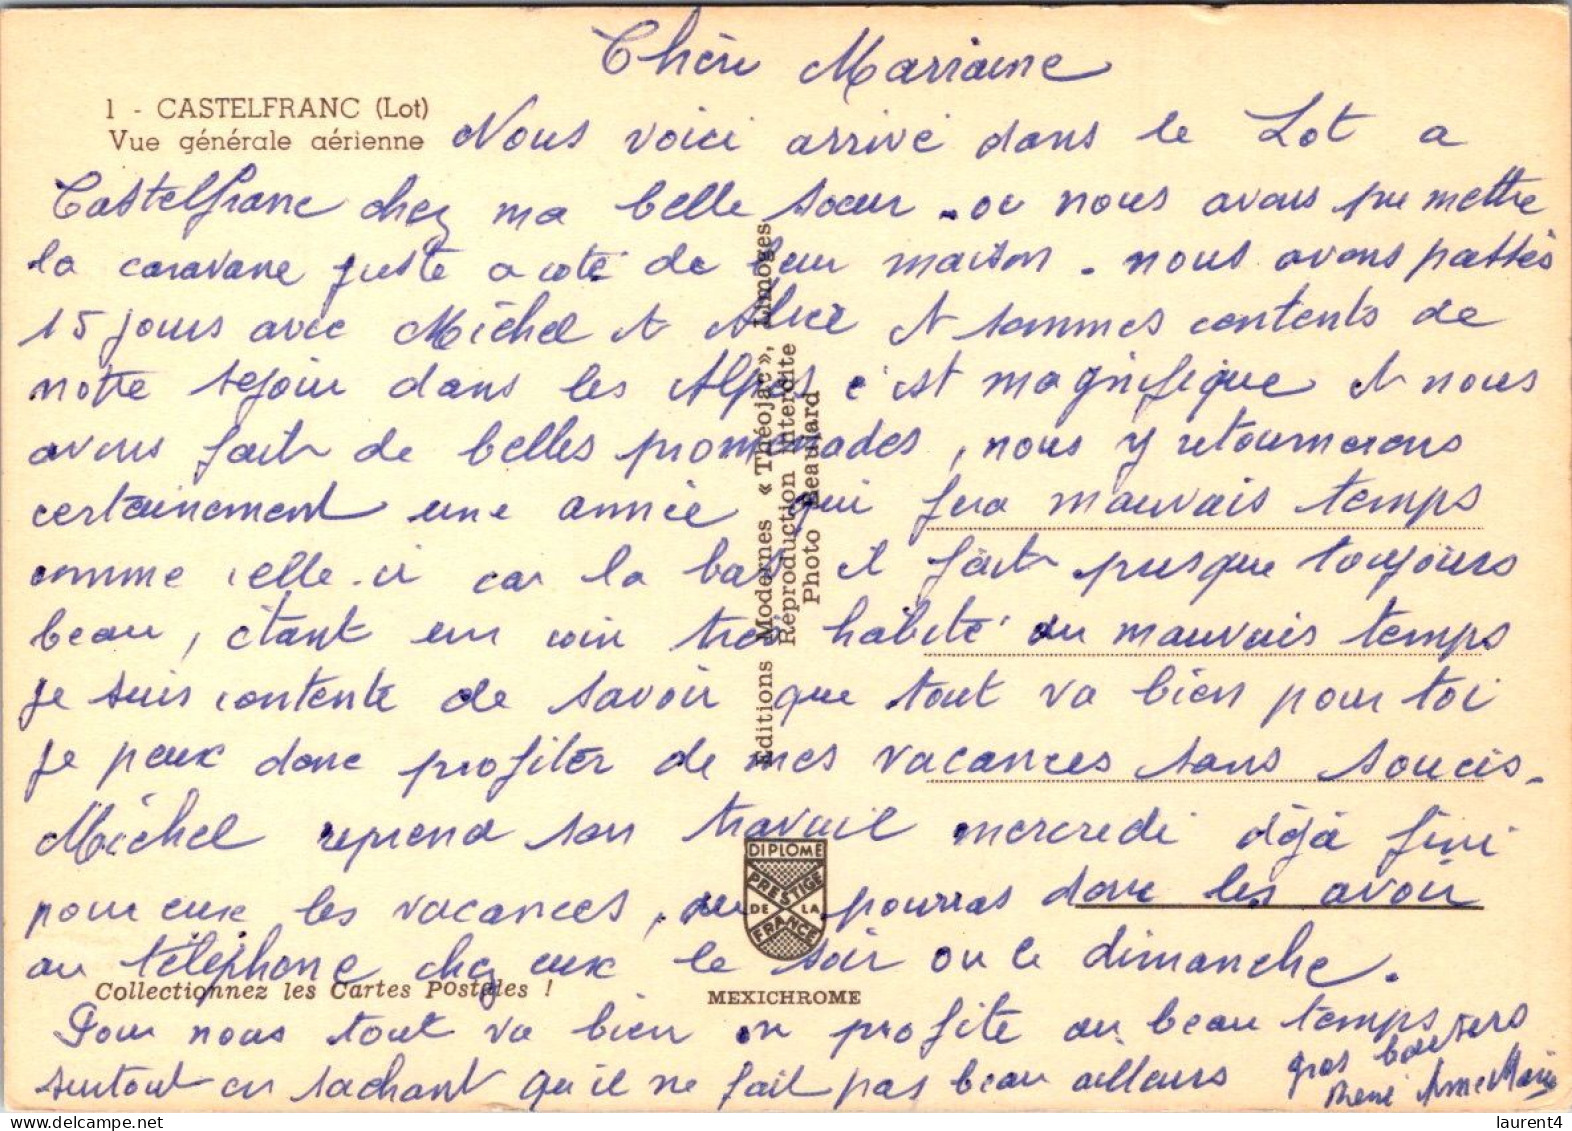 Chère Marianne
1 - CASTELFRANC (Lot)
Vue générale aérienne
Nous voici arrivé dans le Lot a
Castelfranc chez ma belle sœur - ou nous avons pu mettre
la caravane juste a coté de leur maison - nous avons passés
15 jours avec Michel et Alice et sommes contents de
notre sejour dans les Alpes c'est magnifique et nous
avons fait de belles promenades, nous y retournerons
certainement une année qui fera mauvais temps
comme celle-ci car la bas il fait presque toujours
beau, étant un coin très habité du mauvais temps
je suis contente de savoir que tout va bien pour toi
je peux donc profiter de mes vacances sans soucis -
Michel reprend son travail mercredi déjà fini
pour eux les vacances, tu pourras donc les avoir
au téléphone chez eux le soir ou le dimanche.
Pour nous tout va bien on profite du beau temps
surtout en sachant qu'il ne fait pas beau ailleurs
gros baisers
René Anne Marie
Editions Modernes « Théojac », Limoges
Reproduction interdite
Photo Beaujard
DIPLOME
PRESTIGE
DE LA
FRANCE
Collectionnez les Cartes Postales !
MEXICHROME
laurent4